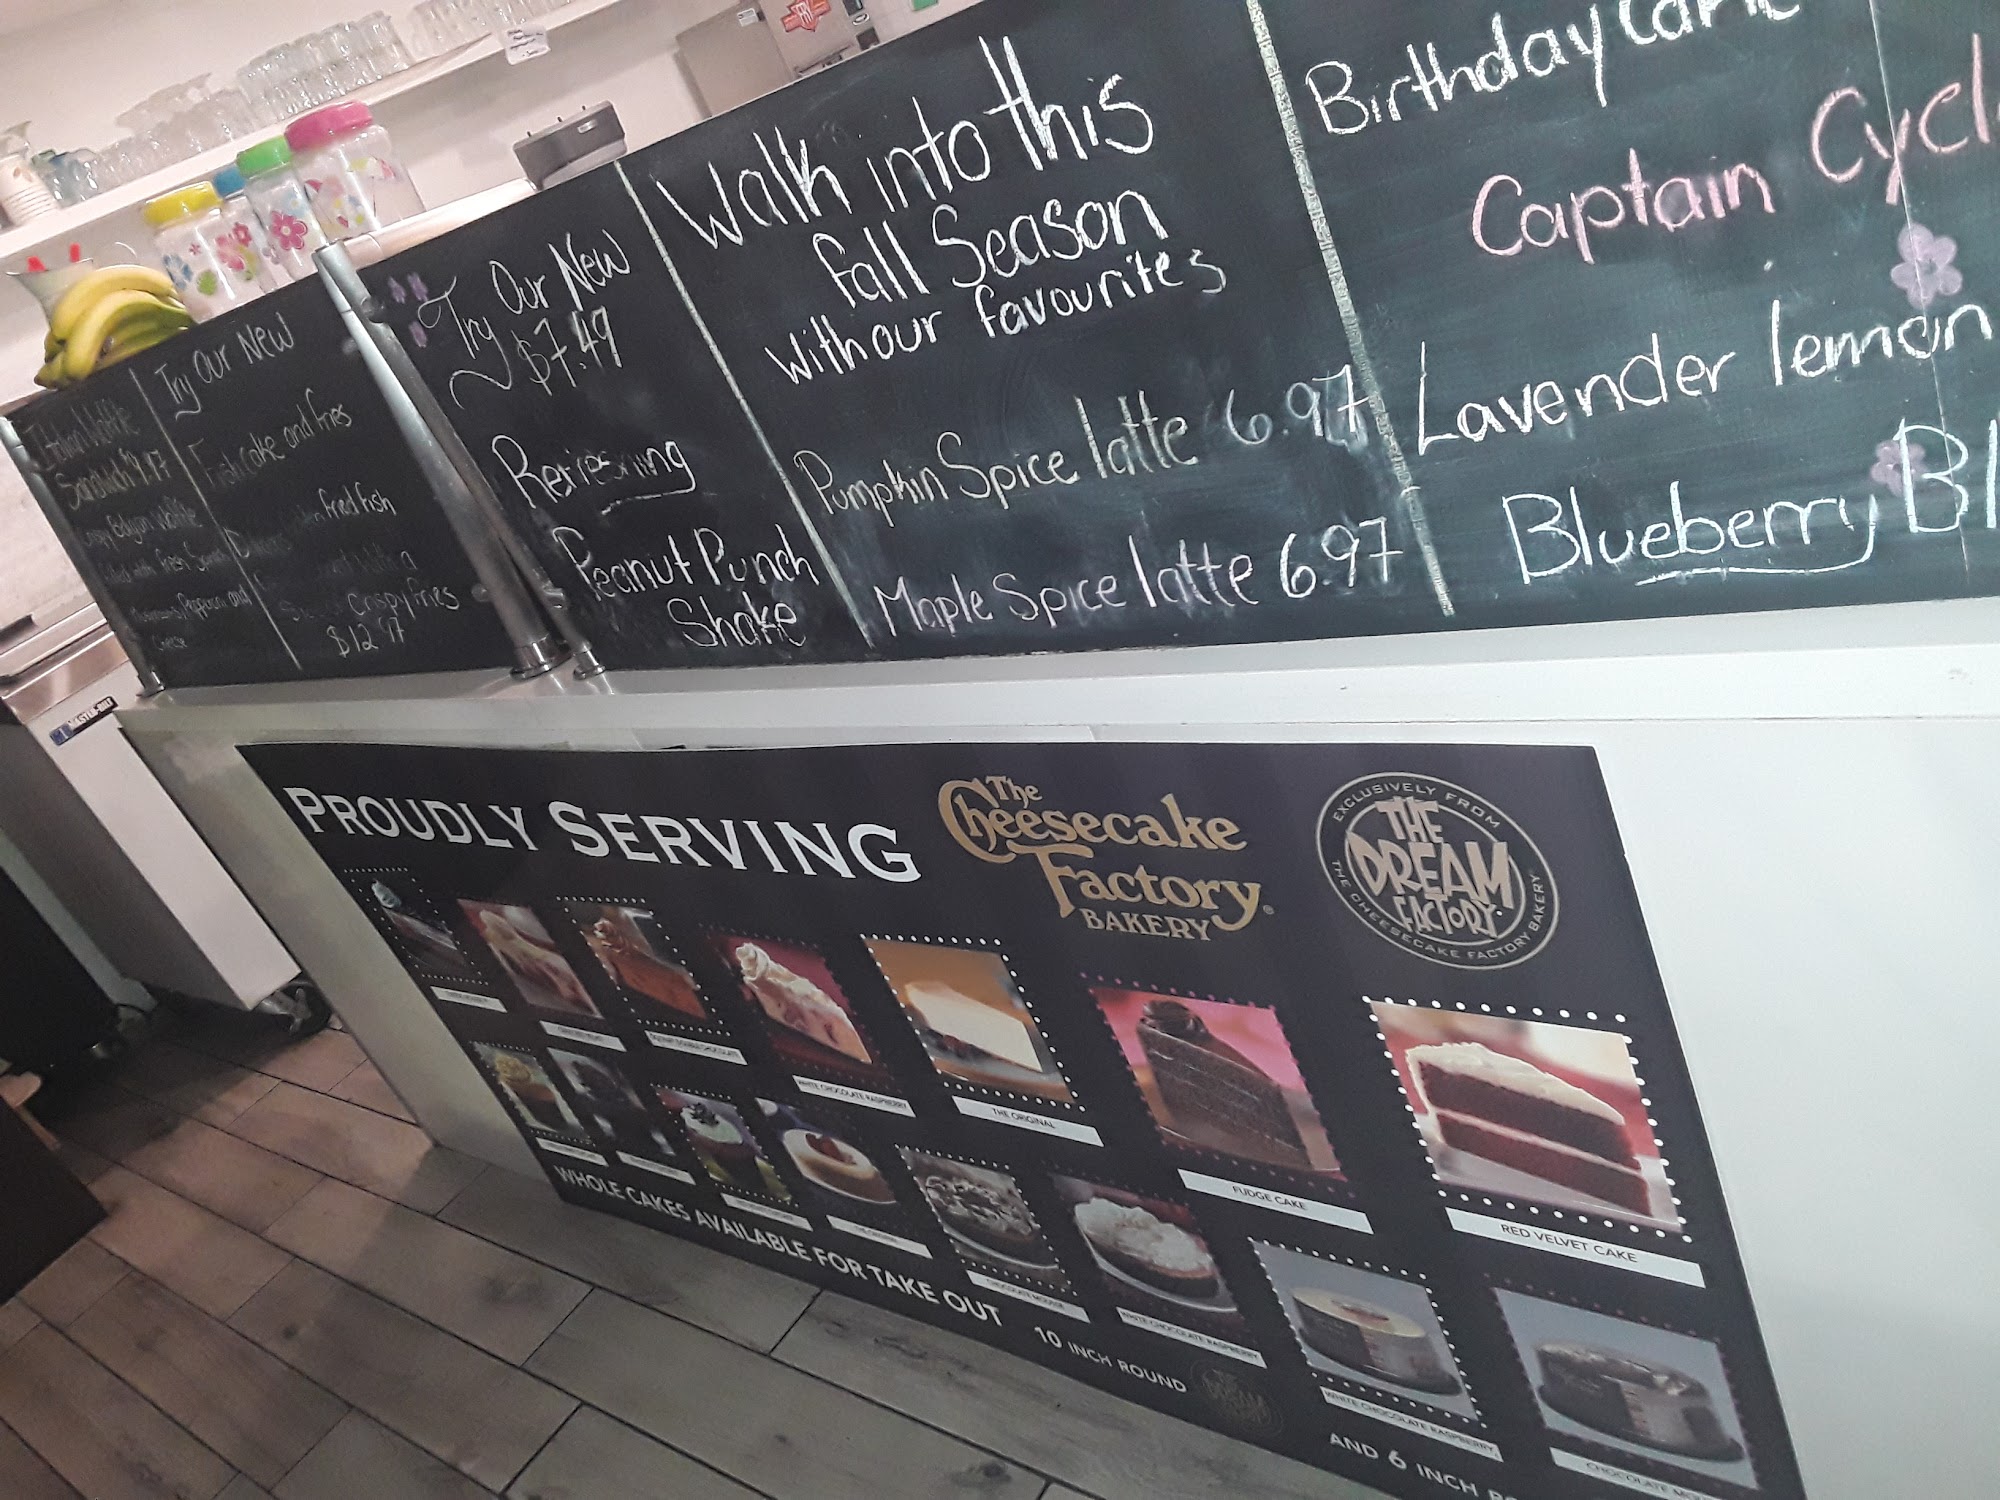 Italian Waffle
Sandwich 9.97
Crispy Belgian Waffle
filled with fresh
Mushrooms, Pepperoni and
Cheese
Try Our New
Fishcake and fries
fried fish
with a
Crispy fries
$12.97
Try Our New
$7.49
Refreshing
Peanut Punch
Shake
Walk into this
fall Season
with our favourites
Pumpkin Spice latte 6.97
Maple Spice latte 6.97
Birthday Cake
Captain
Lavender lemon
Blueberry
MASTER-BILT
PROUDLY SERVING
The Cheesecake
Factory
BAKERY
EXCLUSIVELY FROM
THE
DREAM
FACTORY
THE CHEESECAKE FACTORY BAKERY
WHITE CHOCOLATE RASPBERRY
THE ORIGINAL
FUDGE CAKE
RED VELVET CAKE
CHOCOLATE MOUSSE
WHITE CHOCOLATE RASPBERRY
WHITE CHOCOLATE RASPBERRY
WHOLE CAKES AVAILABLE FOR TAKE OUT
10 INCH ROUND
THE
DREAM
AND 6 INCH